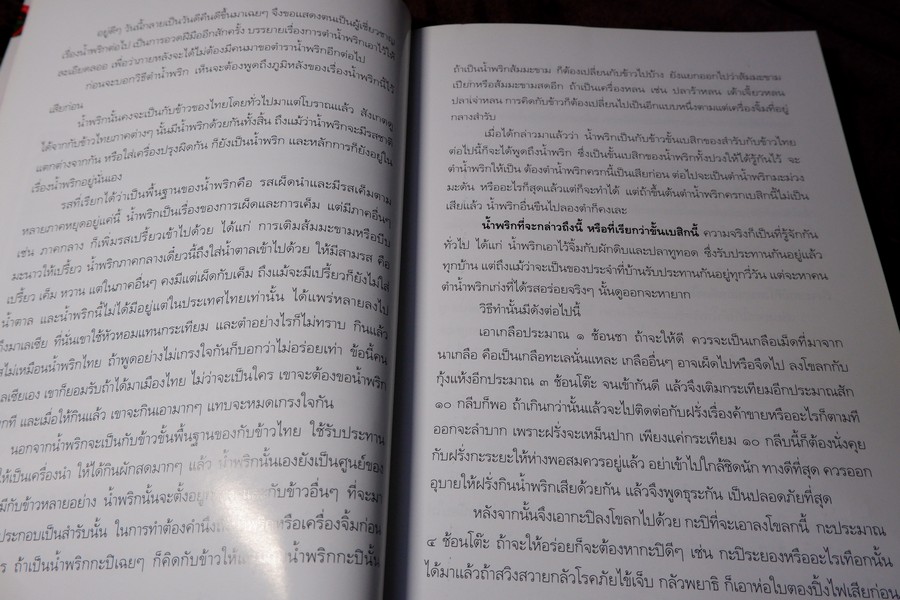 อยู่ดีๆ วันนี้กลายเป็นวันดีคืนดีขึ้นมาเฉยๆ จึงขอแสดงตนเป็นผู้เชี่ยวชาญ
เรื่องน้ำพริกต่อไป เป็นการอวดฝีมืออีกสักครั้ง บรรยายเรื่องการตำน้ำพริกเอาไว้ให้
ละเอียดลออ เพื่อว่าภายหลังจะได้ไม่ต้องมีคนมาขอตำราน้ำพริกอีกต่อไป
ก่อนจะบอกวิธีตำน้ำพริก เห็นจะต้องพูดถึงภูมิหลังของเรื่องน้ำพริกนี้ไว้
เสียก่อน
น้ำพริกนั้นคงจะเป็นกับข้าวของไทยโดยทั่วไปมาแต่โบราณแล้ว สังเกตดู
ได้จากกับข้าวไทยภาคต่างๆ นั้นมีน้ำพริกด้วยกันทั้งสิ้น ถึงแม้ว่าน้ำพริกจะมีรสชาติ
แตกต่างจากกัน หรือใส่เครื่องปรุงผิดกัน ก็ยังเป็นน้ำพริก และหลักการก็ยังอยู่ใน
เรื่องน้ำพริกอยู่นั่นเอง
รสที่เรียกได้ว่าเป็นพื้นฐานของน้ำพริกคือ รสเผ็ดนำและมีรสเค็มตาม
หลายภาคหยุดอยู่แค่นี้ น้ำพริกเป็นเรื่องของการเผ็ดและการเค็ม แต่มีภาคอื่นๆ
เช่น ภาคกลาง ก็เพิ่มรสเปรี้ยวเข้าไปด้วย ได้แก่ การเติมส้มมะขามหรือบีบ
มะนาวให้เปรี้ยว น้ำพริกภาคกลางเดี๋ยวนี้ถึงใส่น้ำตาลเข้าไปด้วย ให้มีสามรส คือ
เปรี้ยว เค็ม หวาน แต่ในภาคอื่นๆ คงมีแต่เผ็ดกับเค็ม ถึงแม้จะมีเปรี้ยวก็ยังไม่ใส่
น้ำตาล และน้ำพริกนี้ไม่ได้มีอยู่แต่ในประเทศไทยเท่านั้น ได้แพร่หลายลงไป
ถึงมาเลเซีย ที่นั่นเขาใช้หัวหอมแทนกระเทียม และตำอย่างไรก็ไม่ทราบ กินแล้ว
ไม่เหมือนน้ำพริกไทย ถ้าพูดอย่างไม่เกรงใจกันก็บอกว่าไม่อร่อยเท่า ข้อนี้คน
เลเซียเอง เขาก็ยอมรับถ้าได้มาเมืองไทย ไม่ว่าจะเป็นใคร เขาจะต้องขอน้ำพริก
ทุกที และเมื่อให้กินแล้ว เขาจะกินเอามากๆ แทบจะหมดเกรงใจกัน
นอกจากน้ำพริกจะเป็นกับข้าวขั้นพื้นฐานของกับข้าวไทย ใช้รับประทาน
ให้เป็นเครื่องนำ ให้ได้กินผักสดมากๆ แล้ว น้ำพริกนั้นเองยังเป็นศูนย์ของ
มีกับข้าวหลายอย่าง น้ำพริกนั้นจะตั้งอยู่ และกับข้าวอื่นๆ ที่จะมา
ประกอบเป็นสำรับนั้น ในการทำต้องคำนึงถึง หรือเครื่องจิ้มก่อน
ถ้าเป็นน้ำพริกกะปิเฉยๆ ก็คิดกับข้าวให้ น้ำพริกกะปินั้น
ถ้าเป็นน้ำพริกส้มมะขาม ก็ต้องเปลี่ยนกับข้าวไปบ้าง ยังแยกออกไปว่าส้มมะขาม
เปียกหรือส้มมะขามสดอีก ถ้าเป็นเครื่องหลน เช่น ปลาร้าหลน เต้าเจี้ยวหลน
ปลาเจ่าหลน การคิดกับข้าวก็ต้องเปลี่ยนไปเป็นอีกแบบหนึ่งตามแต่เครื่องจิ้มที่อยู่
กลางสำรับ
เมื่อได้กล่าวมาแล้วว่า น้ำพริกเป็นกับข้าวขั้นเบสิกของสำรับกับข้าวไทย
ต่อไปนี้ก็จะได้พูดถึงน้ำพริก ซึ่งเป็นขั้นเบสิกของน้ำพริกทั้งปวงให้ได้รู้กันไว้ จะ
ตำน้ำพริกให้เป็น ต้องตำน้ำพริกครกนี้เป็นเสียก่อน ต่อไปจะเป็นตำน้ำพริกมะม่วง
มะดัน หรืออะไรก็สุดแล้วแต่ก็จะทำได้ แต่ถ้าขึ้นต้นตำน้ำพริกครกเบสิกนี้ไม่เป็น
เสียแล้ว น้ำพริกอื่นขืนไปลองตำก็คงเละ
น้ำพริกที่จะกล่าวถึงนี้ หรือที่เรียกว่าขั้นเบสิกนี้ ความจริงก็เป็นที่รู้จักกัน
ทั่วไป ได้แก่ น้ำพริกเอาไว้จิ้มกับผักดิบและปลาทูทอด ซึ่งรับประทานกันอยู่แล้ว
ทุกบ้าน แต่ถึงแม้ว่าจะเป็นของประจำที่บ้านรับประทานกันอยู่ทุกวี่วัน แต่จะหาคน
ตำน้ำพริกเก่งที่ได้รสอร่อยจริงๆ นั้นดูออกจะหายาก
วิธีทำนั้นมีดังต่อไปนี้
เอาเกลือประมาณ ๑ ช้อนชา ถ้าจะให้ดี ควรจะเป็นเกลือเม็ดที่มาจาก
นาเกลือ คือเป็นเกลือทะเลนั่นแหละ เกลืออื่นๆ อาจเผ็ดไปหรือจืดไป ลงโขลกกับ
กุ้งแห้งอีกประมาณ ๓ ช้อนโต๊ะ จนเข้ากันดี แล้วจึงเติมกระเทียมอีกประมาณสัก
๑๐ กลีบก็พอ ถ้าเกินกว่านั้นแล้วจะไปติดต่อกับฝรั่งเรื่องค้าขายหรืออะไรก็ตามที
ออกจะลำบาก เพราะฝรั่งจะเหม็นปาก เพียงแค่กระเทียม ๑๐ กลีบนี้ก็ต้องนั่งคุย
กับฝรั่งกะระยะให้ห่างพอสมควรอยู่แล้ว อย่าเข้าไปใกล้ชิดนัก ทางดีที่สุด ควรออก
อุบายให้ฝรั่งกินน้ำพริกเสียด้วยกัน แล้วจึงพูดธุระกัน เป็นปลอดภัยที่สุด
หลังจากนั้นจึงเอากะปิลงโขลกไปด้วย กะปิที่จะเอาลงโขลกนี้ กะประมาณ
๔ ช้อนโต๊ะ ถ้าจะให้อร่อยก็จะต้องหากะปิดีๆ เช่น กะปิระยองหรืออะไรเทือกนั้น
ได้มาแล้วถ้าสวิงสวายกลัวโรคภัยไข้เจ็บ กลัวพยาธิ ก็เอาห่อใบตองปิ้งไฟเสียก่อน